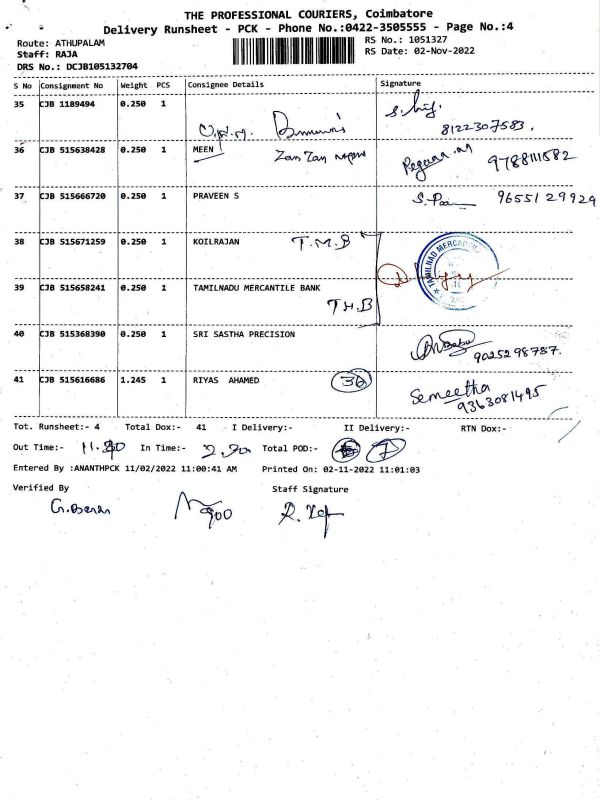 THE PROFESSIONAL COURIERS, Coimbatore
Delivery Runsheet - PCK - Phone No.:0422-3505555 - Page No.:4
Route: ATHUPALAM
RS No.: 1051327
Staff: RAJA
RS Date: 02-Nov-2022
DRS No.: DCJB105132704
S No Consignment No Weight PCS Consignee Details Signature
35 CJB 1189494 0.250 1
8122307583.
36 CJB 515638428 0.250 1 MEEN
9788111582
37 CJB 515666720 0.250 1 PRAVEEN S
9655129929
38 CJB 515671259 0.250 1 KOILRAJAN T.M.B
TAMILNAD MERCANTILE
39 CJB 515658241 0.250 1 TAMILNADU MERCANTILE BANK
T.M.B
40 CJB 515368390 0.250 1 SRI SASTHA PRECISION
9025298787.
41 CJB 515616686 1.245 1 RIYAS AHAMED 36 Semeetha
9363081495
Tot. Runsheet:- 4 Total Dox:- 41 I Delivery:- II Delivery:- RTN Dox:-
Out Time:- 11.30 In Time:- 2.30 Total POD:- 7
Entered By :ANANTHPCK 11/02/2022 11:00:41 AM Printed On: 02-11-2022 11:01:03
Verified By Staff Signature